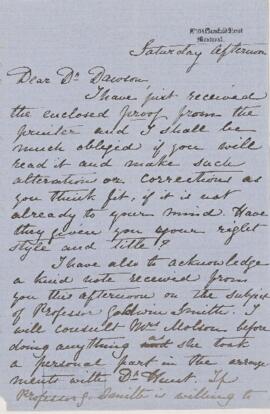 Mansfield Street
Montreal.
Saturday afternoon
Dear Dr Dawson,
I have just received
the enclosed proof from the
printer and I shall be
much obliged if you will
read it and make such
alteration or corrections as
you think fit, if it is not
already to your mind. Have
they given you your right
style and title?
I have also to acknowledge
a kind note received from
you this afternoon on the subject
of Professor Goldwin Smith. I
will consult Mrs Molson before
doing anything as she took
a personal part in the arrange
ments with Dr Hunt. If
Professor G. Smith is willing to